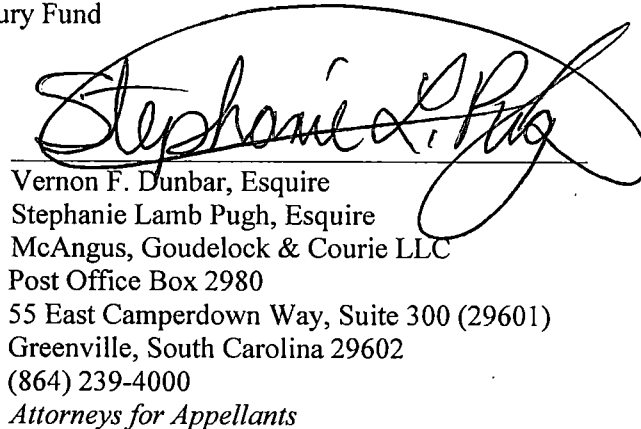 ury Fund
Stephanie L. Pugh
Vernon F. Dunbar, Esquire
Stephanie Lamb Pugh, Esquire
McAngus, Goudelock & Courie LLC
Post Office Box 2980
55 East Camperdown Way, Suite 300 (29601)
Greenville, South Carolina 29602
(864) 239-4000
Attorneys for Appellants